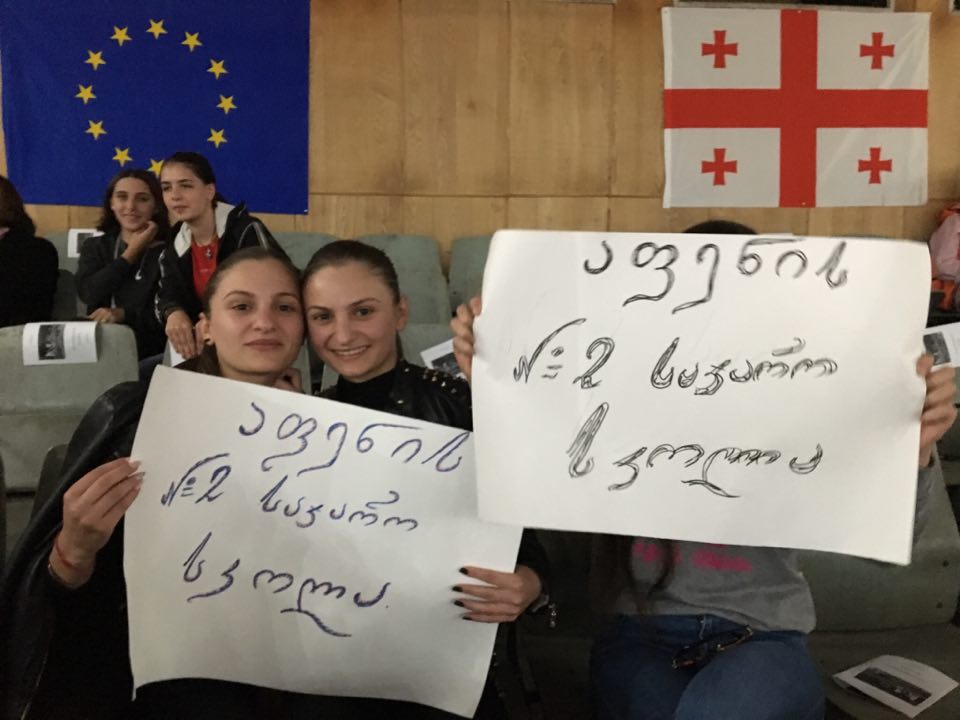 აფენის
№2 საჯარო
სკოლა.
აფენის
№2 საჯარო
სკოლა